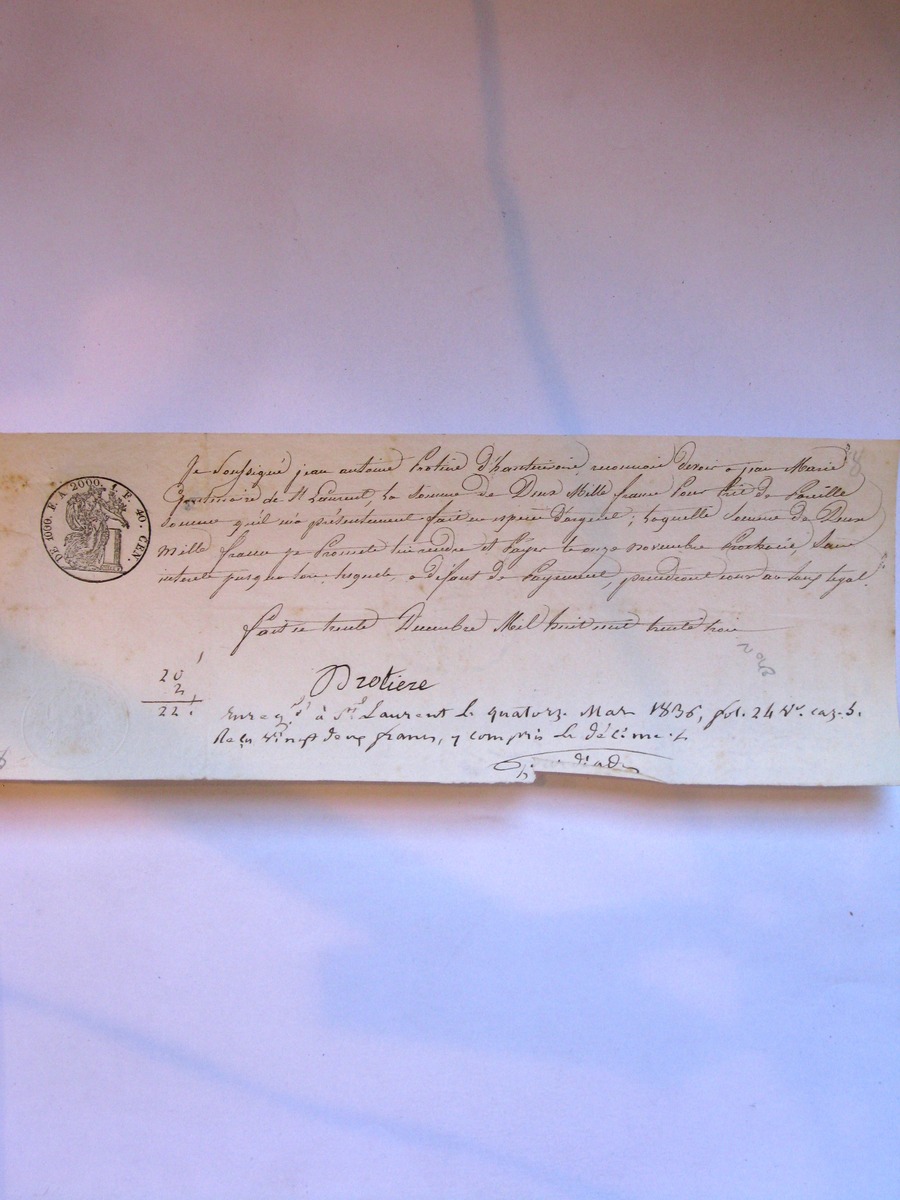 DE 1000. F. A 2000. 1 F. 40. CEN.
Je Soussigné jean antoine reconnais devoir a jean Marie
de St Laurent, la Somme de Deux Mille francs Pour Prêt de Pareille
Somme qu'il m'a présentement fait en espèce d'argent; laquelle Somme de Deux
Mille francs je Promets lui rendre et Payer le onze novembre Prochain, Sans
interets jusques lors, lesquels, a défaut de Payement, prendront cour au taux légal.
fait ce trente Decembre Mil huit cent trente trois
20
2
22
Protiere
Enreg.é à St Laurent le quatorze Mars 1836, fol. 24 vo. cas. 5.
Reçu vingt deux francs, y compris le décime.